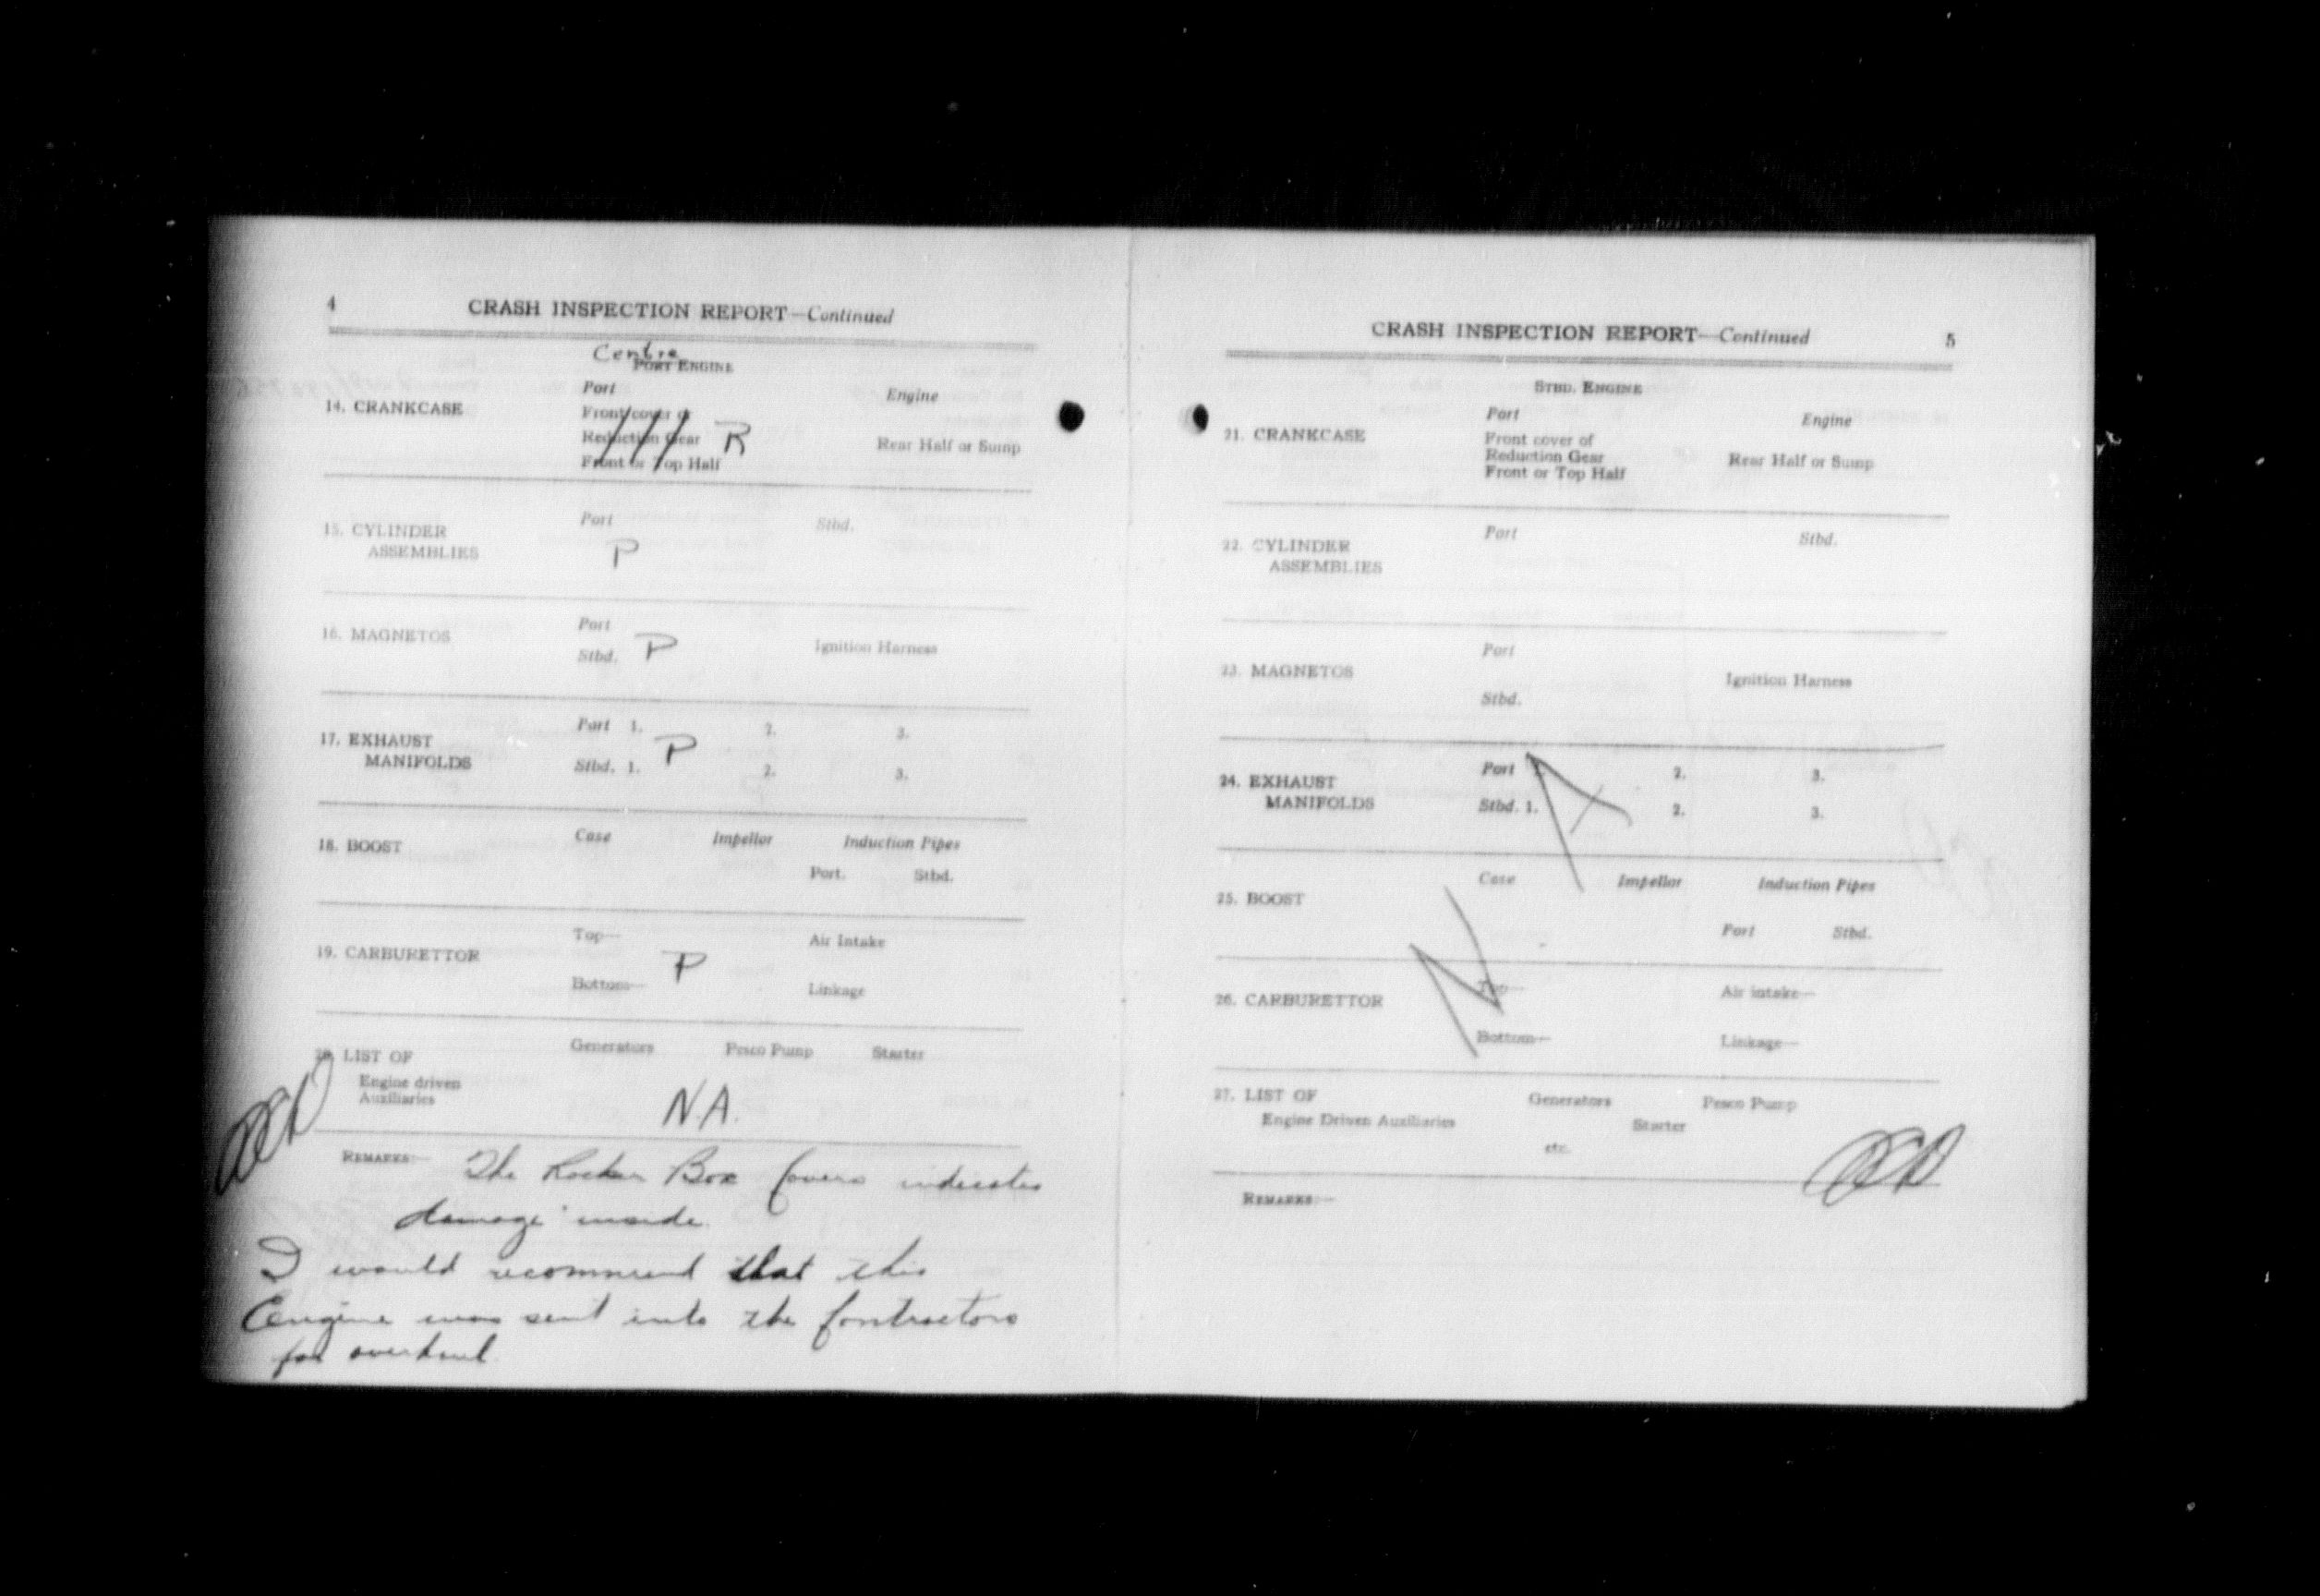 4
CRASH INSPECTION REPORT—Continued
Centre
PORT ENGINE
Port
Engine
14. CRANKCASE
Front cover or
Reduction Gear R
Rear Half or Sump
Front or Top Half
15. CYLINDER
ASSEMBLIES
Port
Stbd.
P
16. MAGNETOS
Port
Stbd. P
Ignition Harness
17. EXHAUST
MANIFOLDS
Port 1. 2. 3.
P
Stbd. 1. 2. 3.
18. BOOST
Case Impellor Induction Pipes
Port. Stbd.
19. CARBURETTOR
Top— Air Intake
P
Bottom— Linkage
20. LIST OF
Engine driven
Auxiliaries
Generators Pesco Pump Starter
NA.
REMARKS:— The Rocker Box Covers indicates
damage inside.
I would recommend that this
Engine was sent into the Contractors
for overhaul
CRASH INSPECTION REPORT—Continued
5
STBD. ENGINE
21. CRANKCASE
Port
Engine
Front cover of
Reduction Gear
Rear Half or Sump
Front or Top Half
22. CYLINDER
ASSEMBLIES
Port
Stbd.
23. MAGNETOS
Port
Ignition Harness
Stbd.
24. EXHAUST
MANIFOLDS
Port 2. 3.
Stbd. 1. 2. 3.
NA
25. BOOST
Case Impellor Induction Pipes
Port Stbd.
26. CARBURETTOR
Top— Air intake—
Bottom— Linkage—
27. LIST OF
Engine Driven Auxiliaries
Generators Pesco Pump
Starter
etc.
REMARKS:—